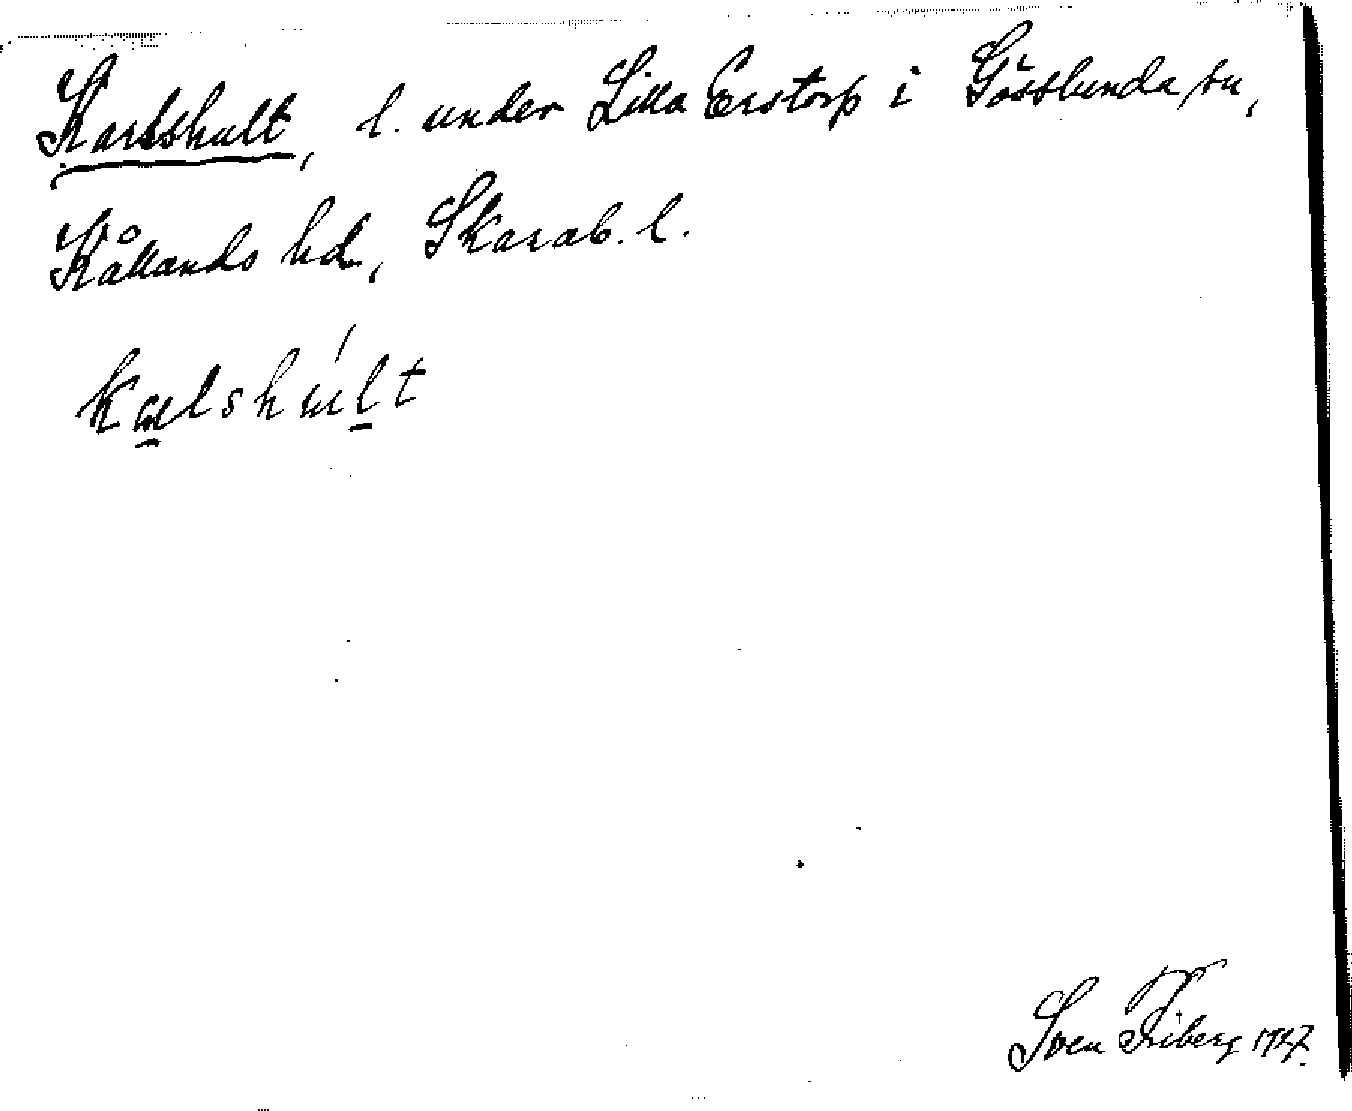 Karlshult, l. under Lilla Erstorp i Gösslunda sn,
Kållands hd, Skarab. l.
kalshúlt
Sven Friberg 1927.